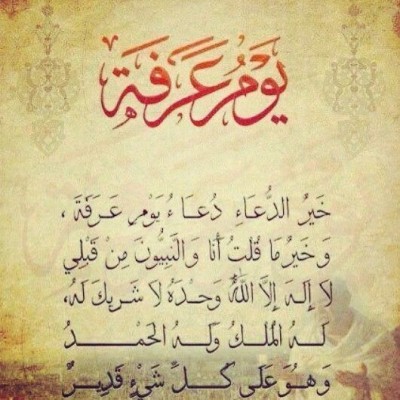 يَوْمُ عَرَفَة
خَيْرُ الدُّعَاءِ دُعَاءُ يَوْمِ عَرَفَةَ ،
وَخَيْرُ مَا قُلْتُ أَنَا وَالنَّبِيُّونَ مِنْ قَبْلِي
لَا إِلَهَ إِلَّا اللَّهُ وَحْدَهُ لَا شَرِيكَ لَهُ،
لَهُ الْمُلْكُ وَلَهُ الْحَمْدُ
وَهُوَ عَلَى كُلِّ شَيْءٍ قَدِيرٌ